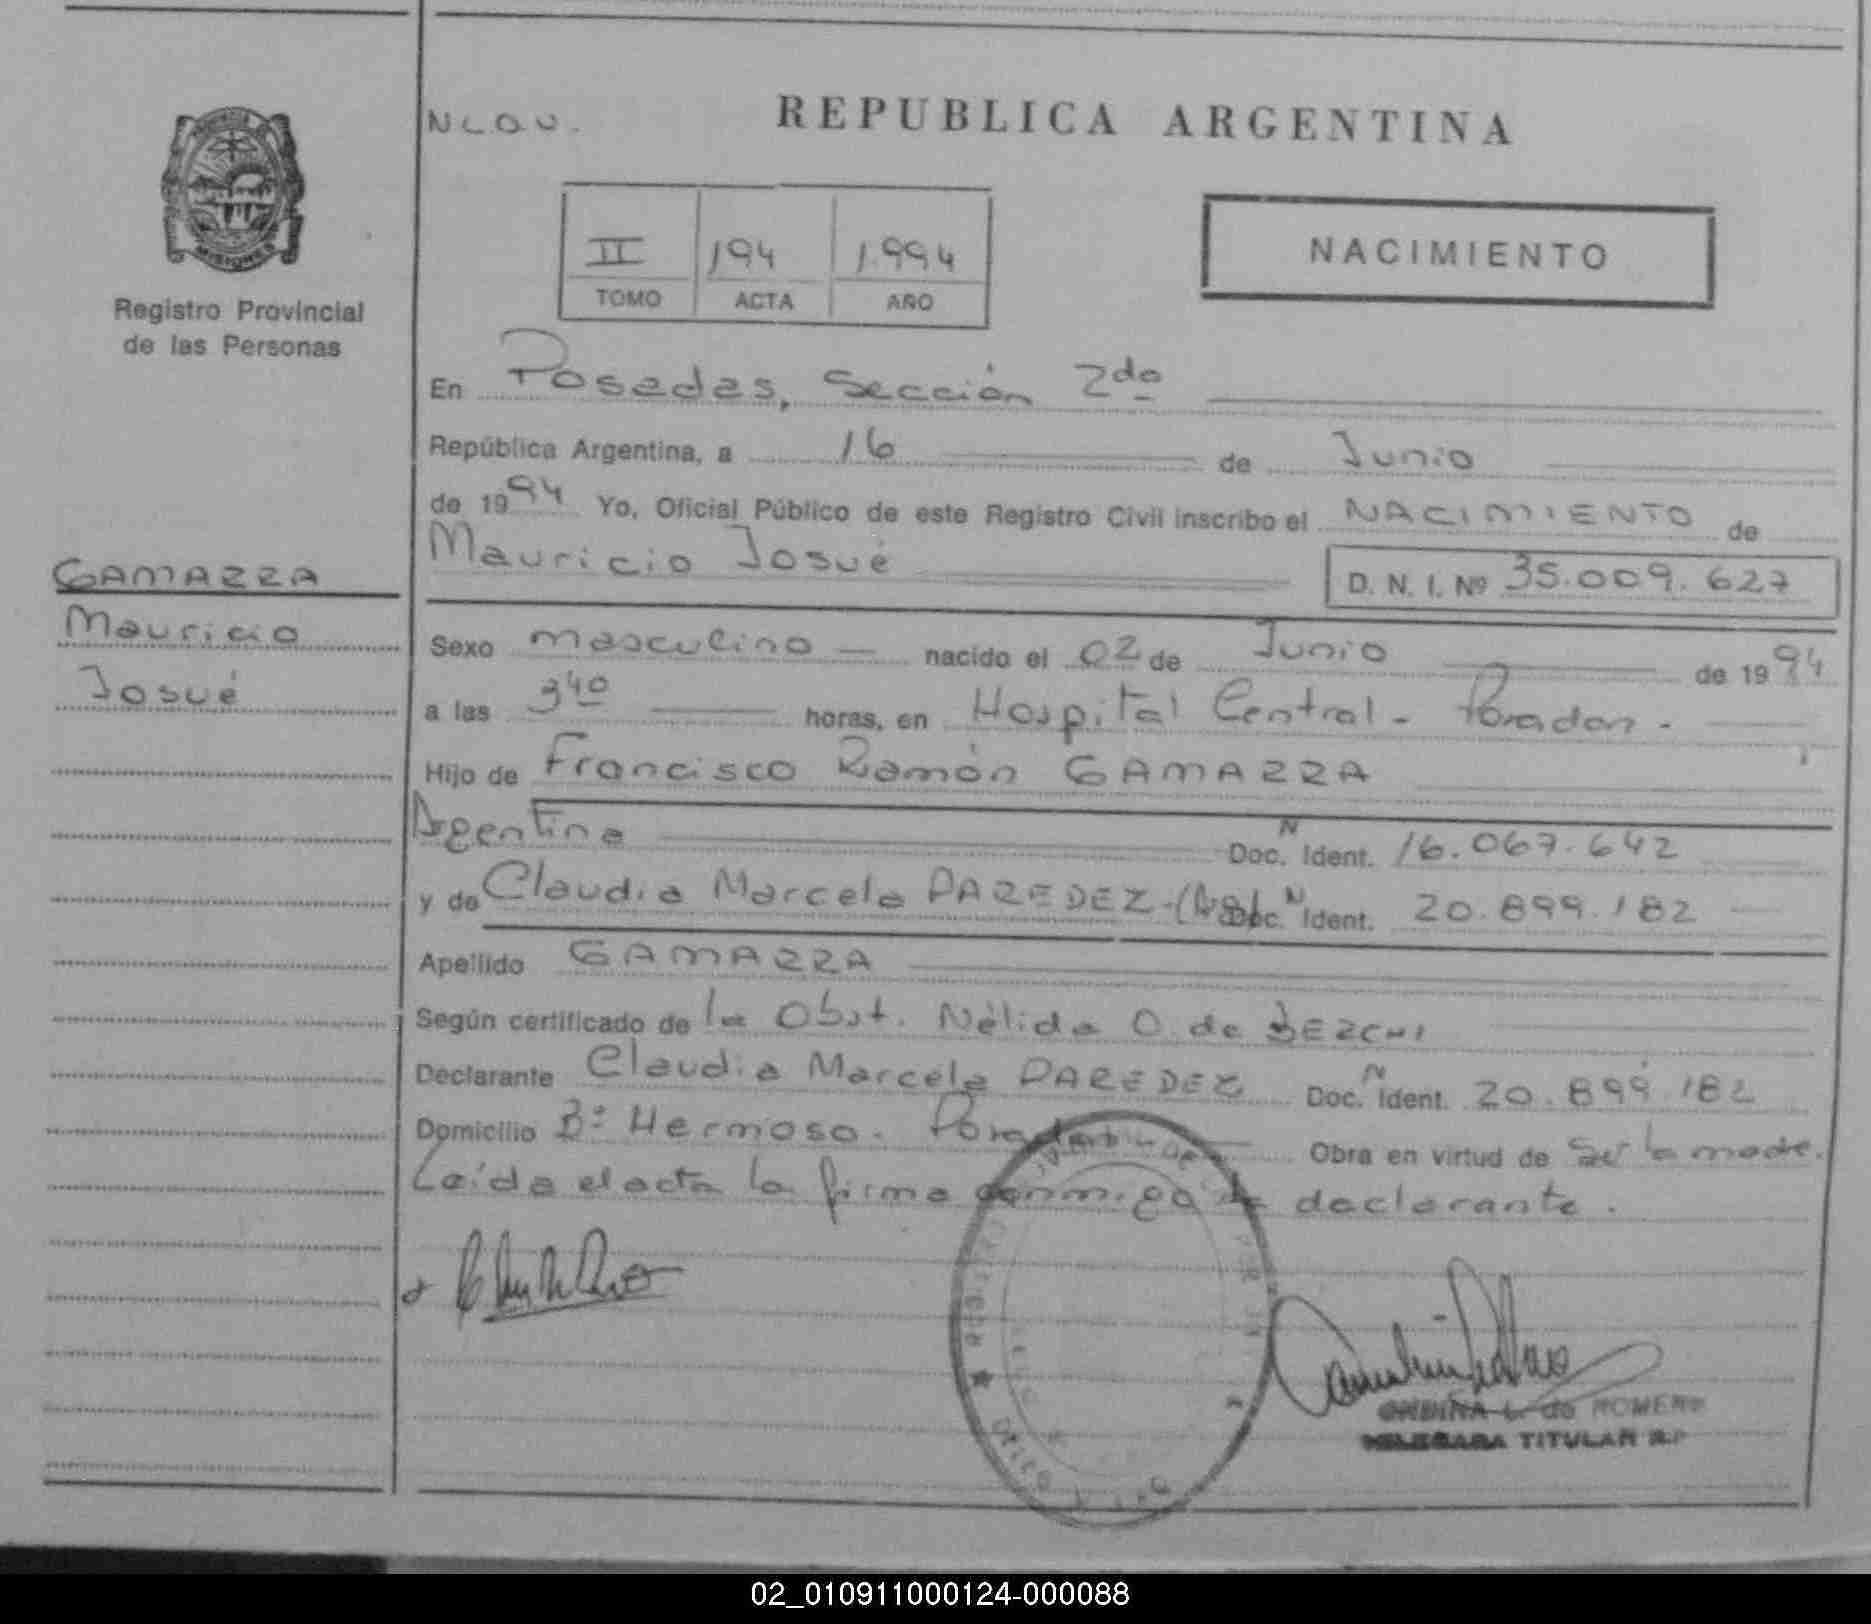 N.L.Q.V.
REPUBLICA ARGENTINA
MISIONES
Registro Provincial
de las Personas
II 194 1.994
TOMO ACTA AÑO
NACIMIENTO
En Posadas, Sección 2da
República Argentina, a 16 de Junio
de 1994 Yo, Oficial Público de este Registro Civil inscribo el NACIMIENTO de
Mauricio Josué D. N. I. Nº 35.009.627
GAMARRA
Mauricio
Josué
Sexo masculino nacido el 02 de Junio de 1994
a las 3 40 horas, en Hospital Central - Posadas.
Hijo de Francisco Ramón GAMARRA
Argentino Doc. N Ident. 16.067.642
y de Claudia Marcela PAREDEZ - Doc. N Ident. 20.899.182
Apellido GAMARRA
Según certificado de la Obst. Nélida O. de
Declarante Claudia Marcela PAREDEZ Doc. N Ident. 20.899.182
Domicilio Bº Hermoso. Posadas Obra en virtud de ser la madre.
Leída el acta la firma conmigo la declarante.
L. de ROMERO
DELEGADA TITULAR R.P
02_010911000124-000088